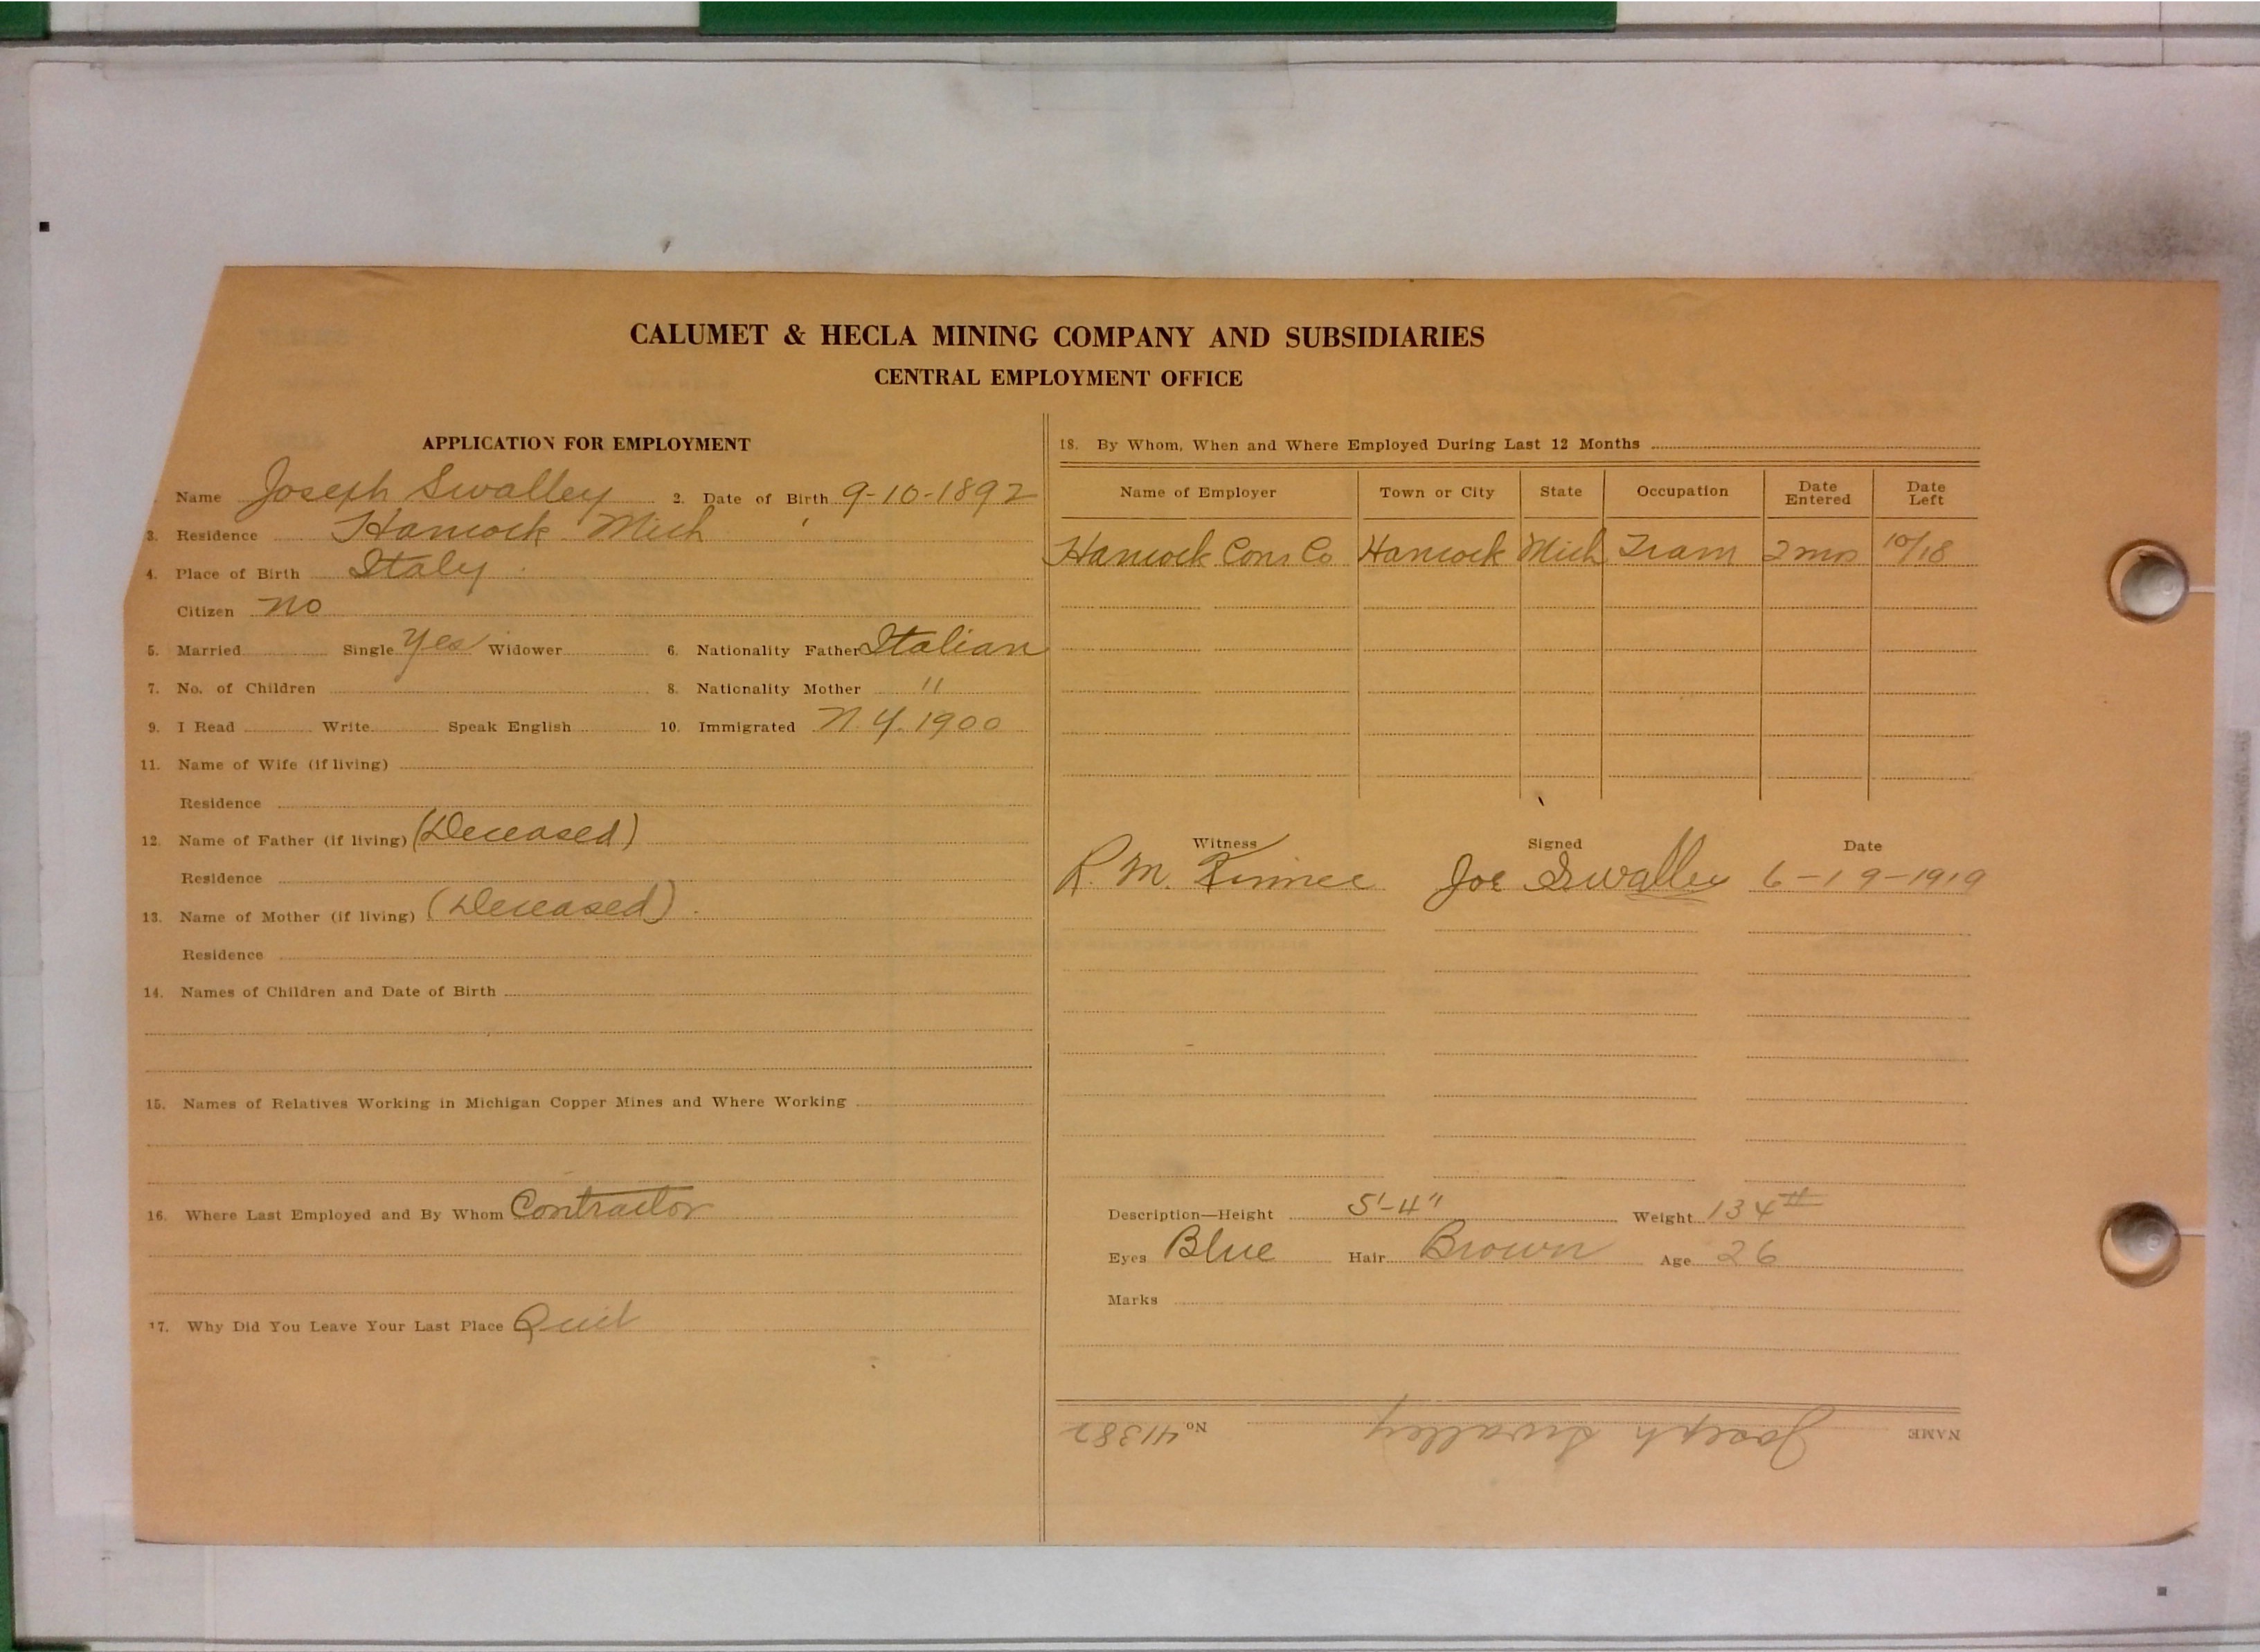 CALUMET & HECLA MINING COMPANY AND SUBSIDIARIES
CENTRAL EMPLOYMENT OFFICE
APPLICATION FOR EMPLOYMENT
Name Joseph Swalley 2. Date of Birth 9-10-1892
3. Residence Hancock Mich
4. Place of Birth Italy
Citizen no
5. Married Single Yes Widower 6. Nationality Father Italian
7. No. of Children 8. Nationality Mother "
9. I Read Write Speak English 10. Immigrated N.Y. 1900
11. Name of Wife (if living)
Residence
12. Name of Father (if living) (Deceased)
Residence
13. Name of Mother (if living) (Deceased)
Residence
14. Names of Children and Date of Birth
15. Names of Relatives Working in Michigan Copper Mines and Where Working
16. Where Last Employed and By Whom Contractor
17. Why Did You Leave Your Last Place Quit
18. By Whom, When and Where Employed During Last 12 Months
Name of Employer Town or City State Occupation Date Entered Date Left
Hancock Cons Co Hancock Mich Tram 2 mos 10/18
Witness Signed Date
R. M. Kinnee Joe Swalley 6-19-1919
Description—Height 5'-4" Weight 134#
Eyes Blue Hair Brown Age 26
Marks
NAME Joseph Swalley No 41382